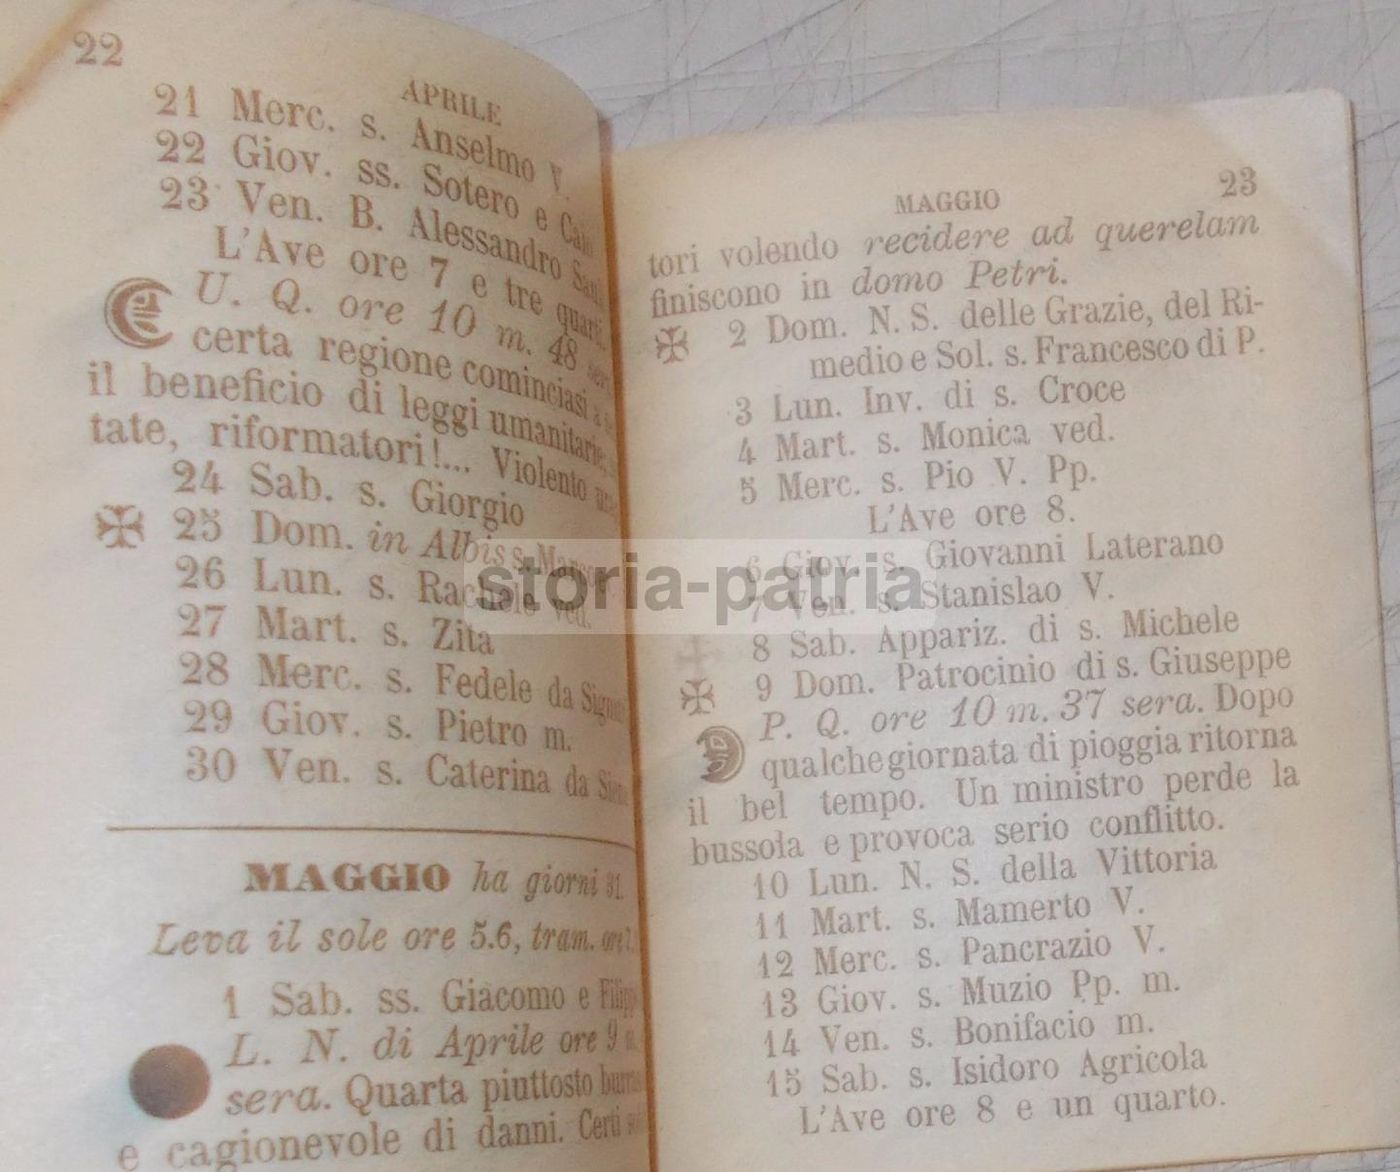 22
APRILE
21 Merc. s. Anselmo V.
22 Giov. ss. Sotero e
23 Ven. B. Alessandro
L'Ave ore 7 e tre quarti.
U. Q. ore 10 m. 48
certa regione cominciasi a
il beneficio di leggi umanitarie,
tate, riformatori!... Violento
24 Sab. s. Giorgio
25 Dom. in Albis s. Marco
26 Lun. s. Rachele ved.
27 Mart. s. Zita
28 Merc. s. Fedele da
29 Giov. s. Pietro m.
30 Ven. s. Caterina da
MAGGIO ha giorni 31.
Leva il sole ore 5.6, tram. ore
1 Sab. ss. Giacomo e
L. N. di Aprile ore 9
sera. Quarta piuttosto
e cagionevole di danni. Certi
MAGGIO
23
tori volendo recidere ad querelam
finiscono in domo Petri.
2 Dom. N. S. delle Grazie, del Ri-
medio e Sol. s. Francesco di P.
3 Lun. Inv. di s. Croce
4 Mart. s. Monica ved.
5 Merc. s. Pio V. Pp.
L'Ave ore 8.
6 Giov. s. Giovanni Laterano
7 Ven. s. Stanislao V.
8 Sab. Appariz. di s. Michele
9 Dom. Patrocinio di s. Giuseppe
P. Q. ore 10 m. 37 sera. Dopo
qualche giornata di pioggia ritorna
il bel tempo. Un ministro perde la
bussola e provoca serio conflitto.
10 Lun. N. S. della Vittoria
11 Mart. s. Mamerto V.
12 Merc. s. Pancrazio V.
13 Giov. s. Muzio Pp. m.
14 Ven. s. Bonifacio m.
15 Sab. s. Isidoro Agricola
L'Ave ore 8 e un quarto.
storia-patria